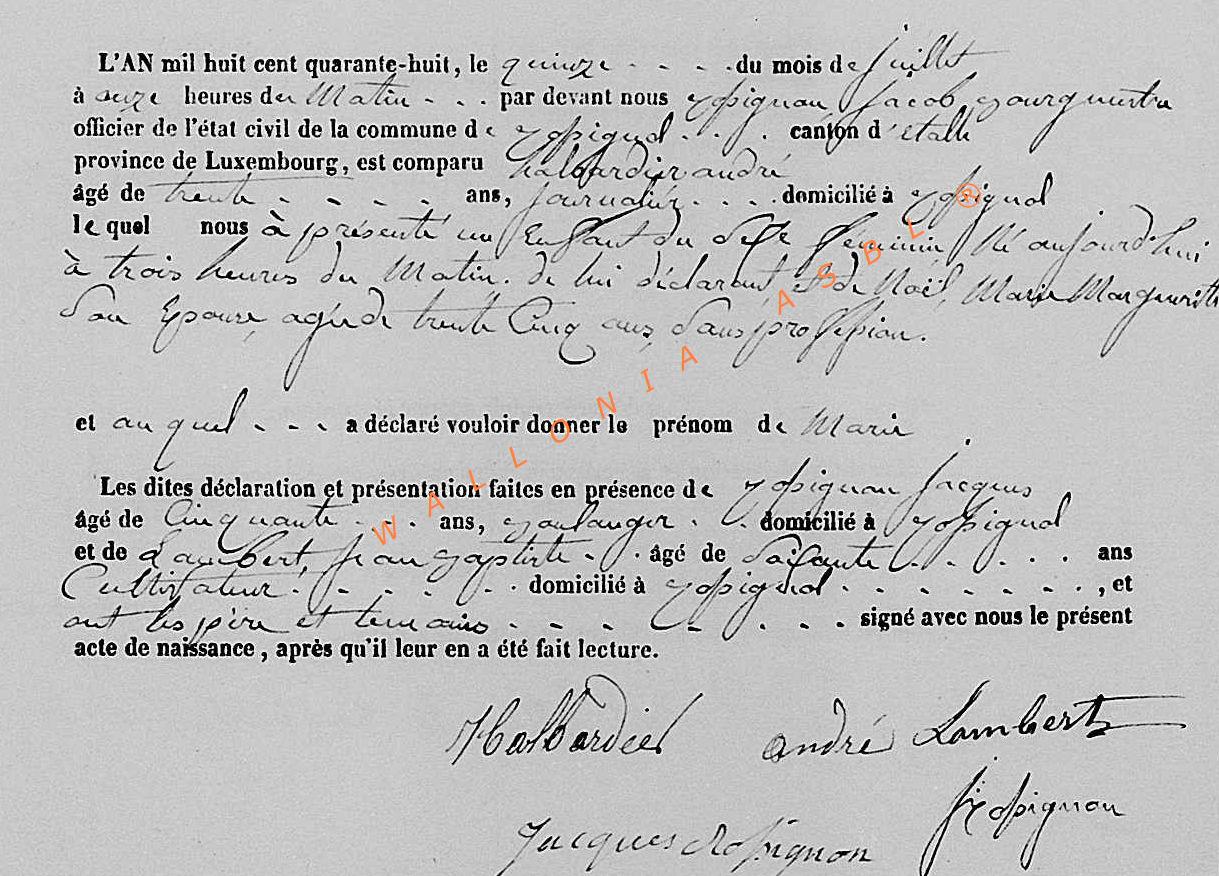 L'AN mil huit cent quarante-huit, le quinze - - - - du mois de juillet
à onze heures du Matin - - - par devant nous Rossignon, Jacob, Bourgmestre
officier de l'état civil de la commune de Rossignol - - - canton d'étalle
province de Luxembourg, est comparu halbardier andré
âgé de trente - - - - ans, journalier - - - domicilié à Rossignol
le quel nous à présenté un Enfant du Sexe féminin, Né aujourd'hui
à trois heures du Matin. de lui déclarant et de Noël, Marie Marguerite
Son Epouse, agée de trente Cinq ans, Sans profession.
et au quel - - - a déclaré vouloir donner le prénom de Marie
Les dites déclaration et présentation faites en présence de Rossignon Jacques
âgé de Cinquante - - - ans, Boulanger - - domicilié à Rossignol
et de Lambert, jean Baptiste - - âgé de Soixante - - - - - ans
Cultivateur - - - - - domicilié à Rossignol - - - - - - - , et
ont les père et temoins - - - - - - - - signé avec nous le présent
acte de naissance, après qu'il leur en a été fait lecture.
Halbardier andré Lambert
J Rossignon
Jacques Rossignon
WALLONIA ASBL ®